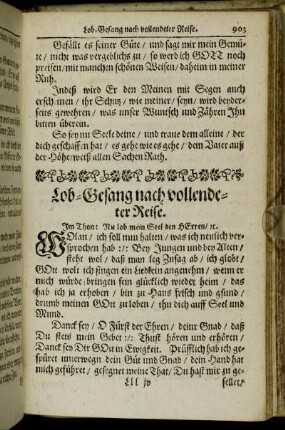 Lob-Gesang nach vollendeter Reise. 903
Gefällt es seiner Güte / und sagt mir mein Gemü-
te / nicht was vergeblichs zu / so werd ich GOTT noch
preisen / mit manchen schönen Weisen / daheim in meiner
Ruh.
Indeß wird Er den Meinen mit Segen auch
erscheinen / ihr Schutz / wie meiner / seyn / wird beyder-
seits gewehren / was unser Wunsch und Zähren Ihn
bitten überein.
So sey nu Seele deine / und traue dem alleine / der
dich geschaffen hat / es gehe wie es gehe / dein Vater auß
der Höhe / weiß allen Sachen Rath.
Lob-Gesang nach vollende-
ter Reise.
Im Thon: Nu lob mein Seel den HErren / ꝛc.
WOlan / ich soll nun halten / was ich neulich ver-
sprochen hab :/: Bey Jungen und bey Alten /
steht wol / daß man leg Zusag ab / ich globt /
GOtt wolt ich singen ein Liedlein angenehm / wenn er
mich würde bringen fein glücklich wieder heim / das
hab ich zu erhoben / bin zu Haus frisch und gsund /
drumb meinen GOtt zu loben / thu dich auff Seel und
Mund.
Danck sey / O Fürst der Ehren / deinr Gnad / daß
Du stets mein Gebet :/: Thust hören und erhören /
Danck sey Dir GOtt in Ewigkeit. Prüfftlich hab ich ge-
spüret unterwegn dein Güt und Gnad / dein Hand hat
mich geführet / gesegnet meine That / Du hast mir zu ge-
Lll iv sellet /